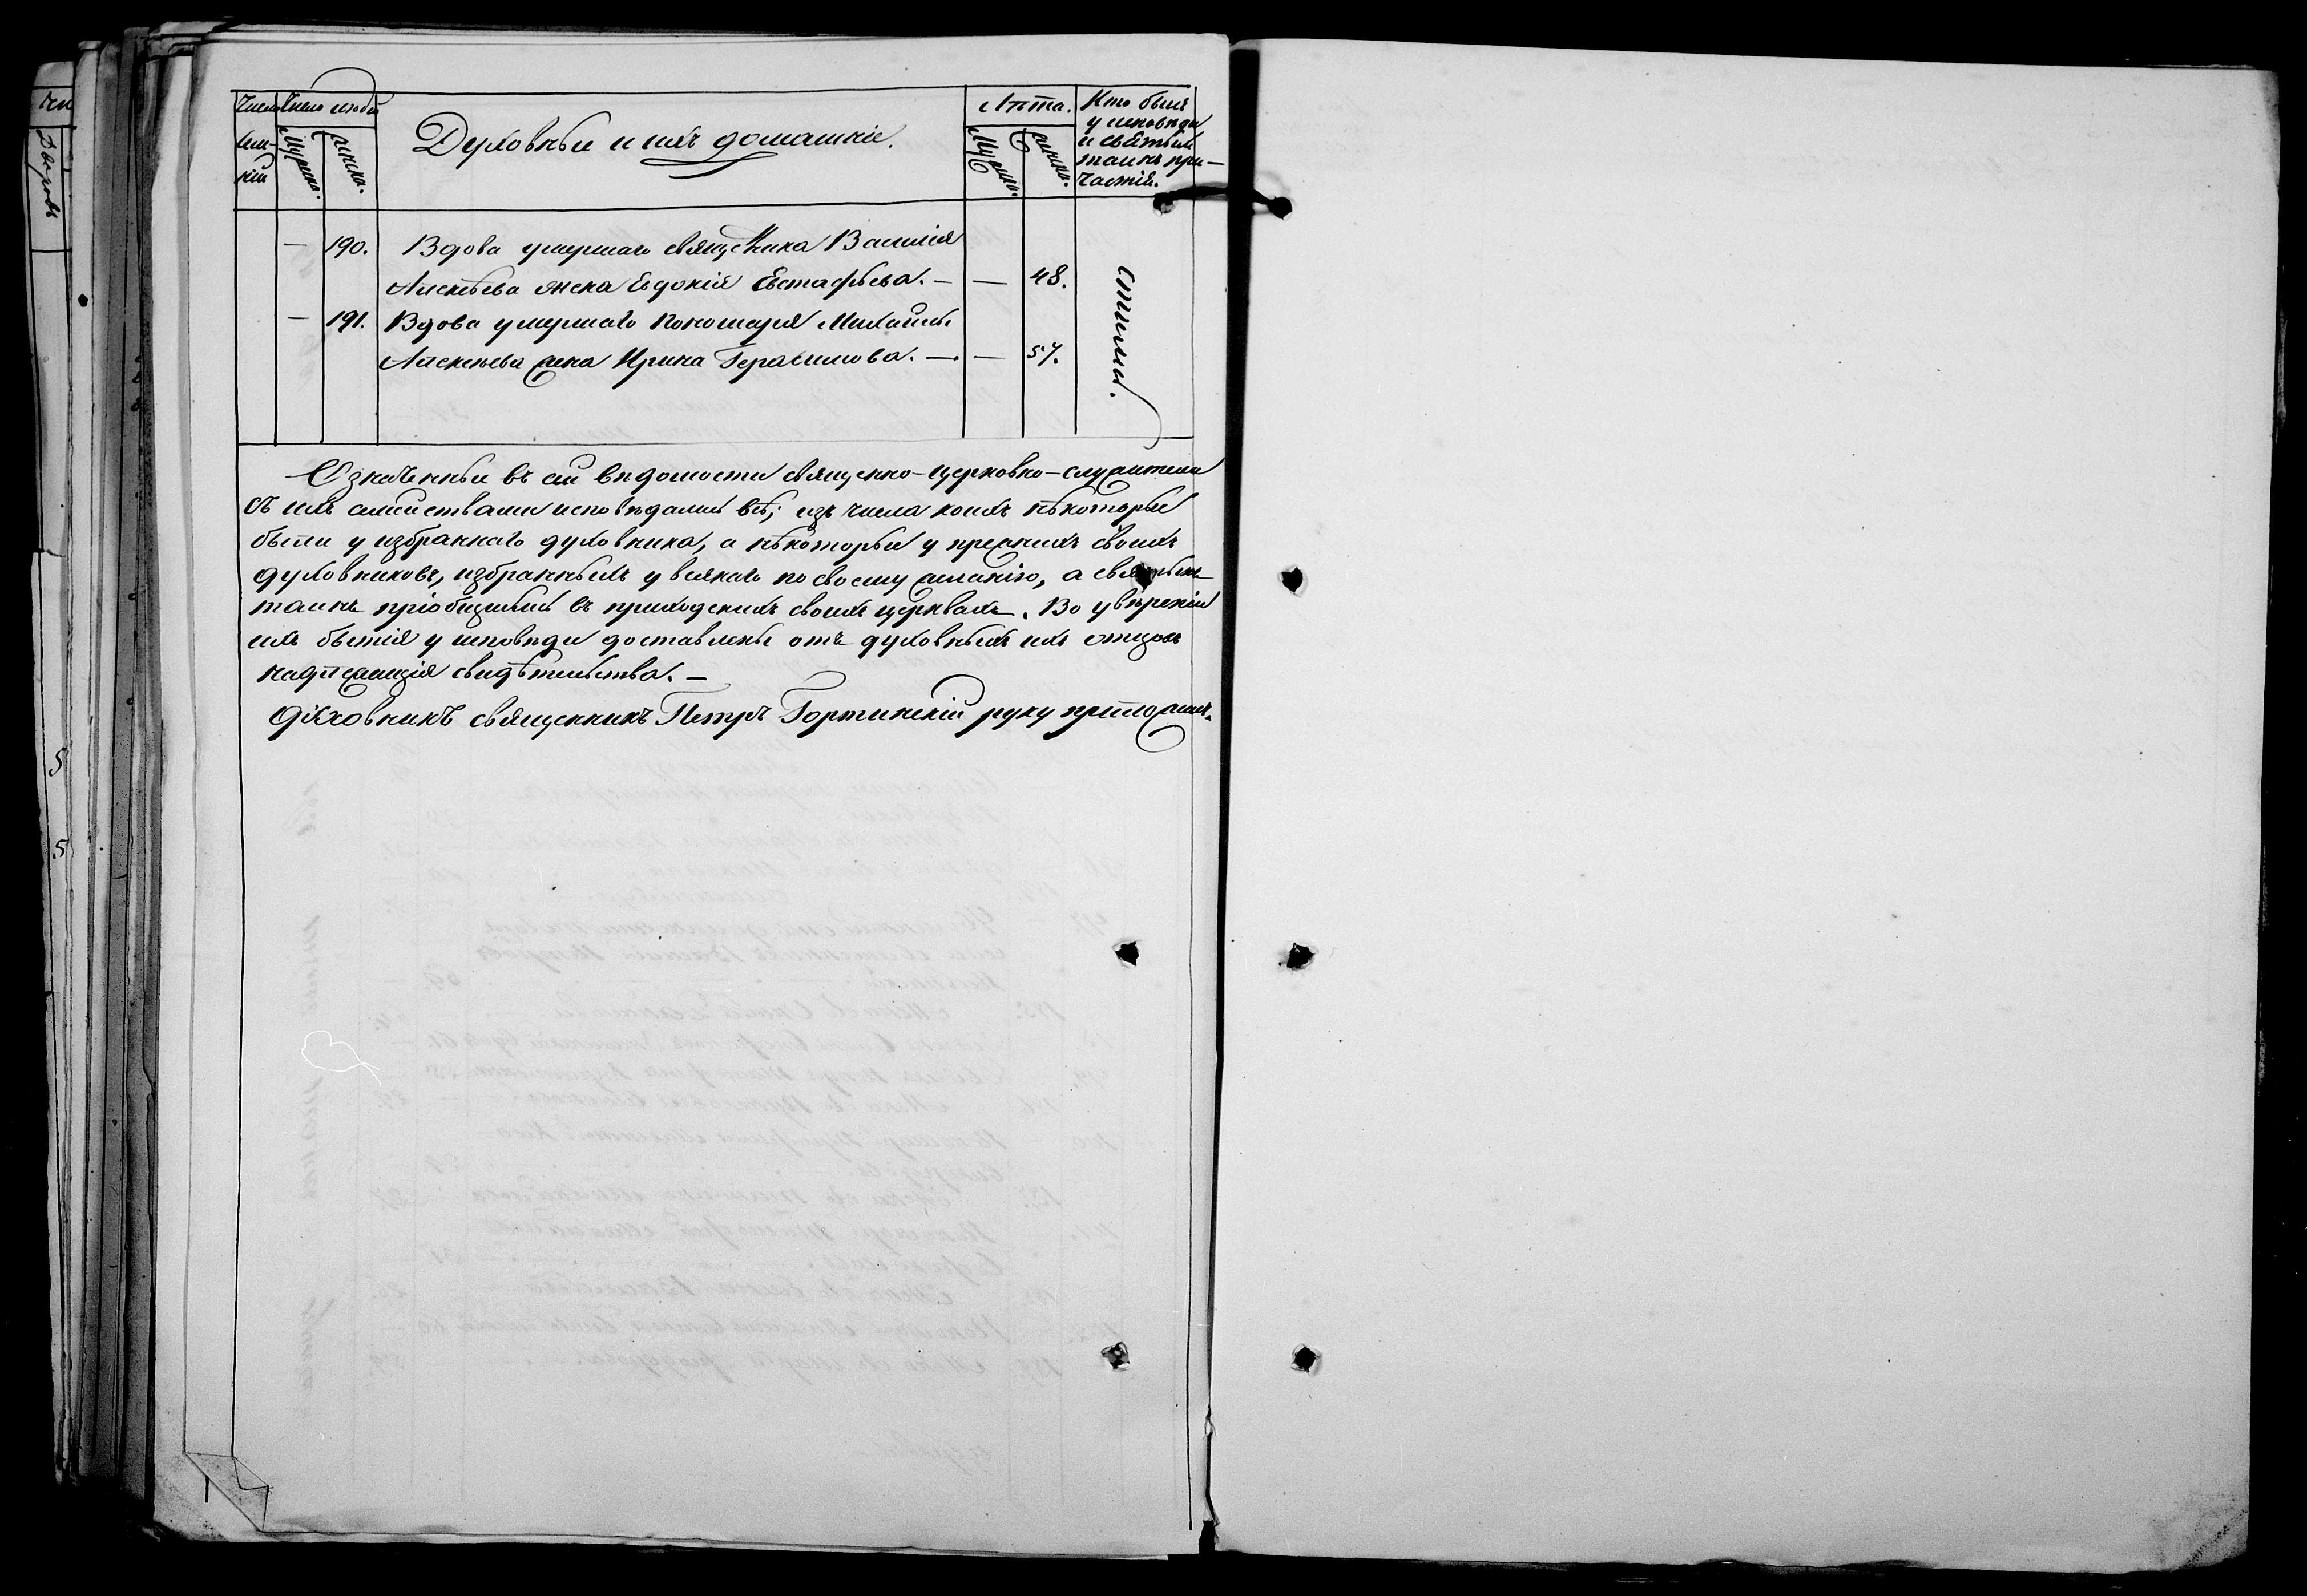 Число людей
Мужска.
Женска.
Духовные и ихъ домашніе.
Лѣта.
Мужска.
Женска.
Кто былъ
у исповѣди
и святыхъ
таинъ при-
частія.
— 190. Вдова умершаго священника Василія
Алексѣева жена Евдокія Евстафьева. — — 48.
— 191. Вдова умершаго пономаря Михаила
Алексѣева жена Ирина Герасимова. — — 57.
Означенные въ сей вѣдомости священно-церковно-служители
съ ихъ семействами исповѣдались всѣ; изъ числа коихъ нѣкоторые
были у избраннаго духовника, а нѣкоторые у прежнихъ своихъ
духовниковъ, избранныхъ у всякаго по своему желанію, а святыхъ
таинъ пріобщились въ приходскихъ своихъ церквахъ. Во увѣреніи
ихъ бытія у исповѣди доставлены отъ духовныхъ ихъ отцовъ
надлежащія свидѣтельства. —
Духовникъ священникъ Петръ руку приложилъ.
Дворовъ
5
5